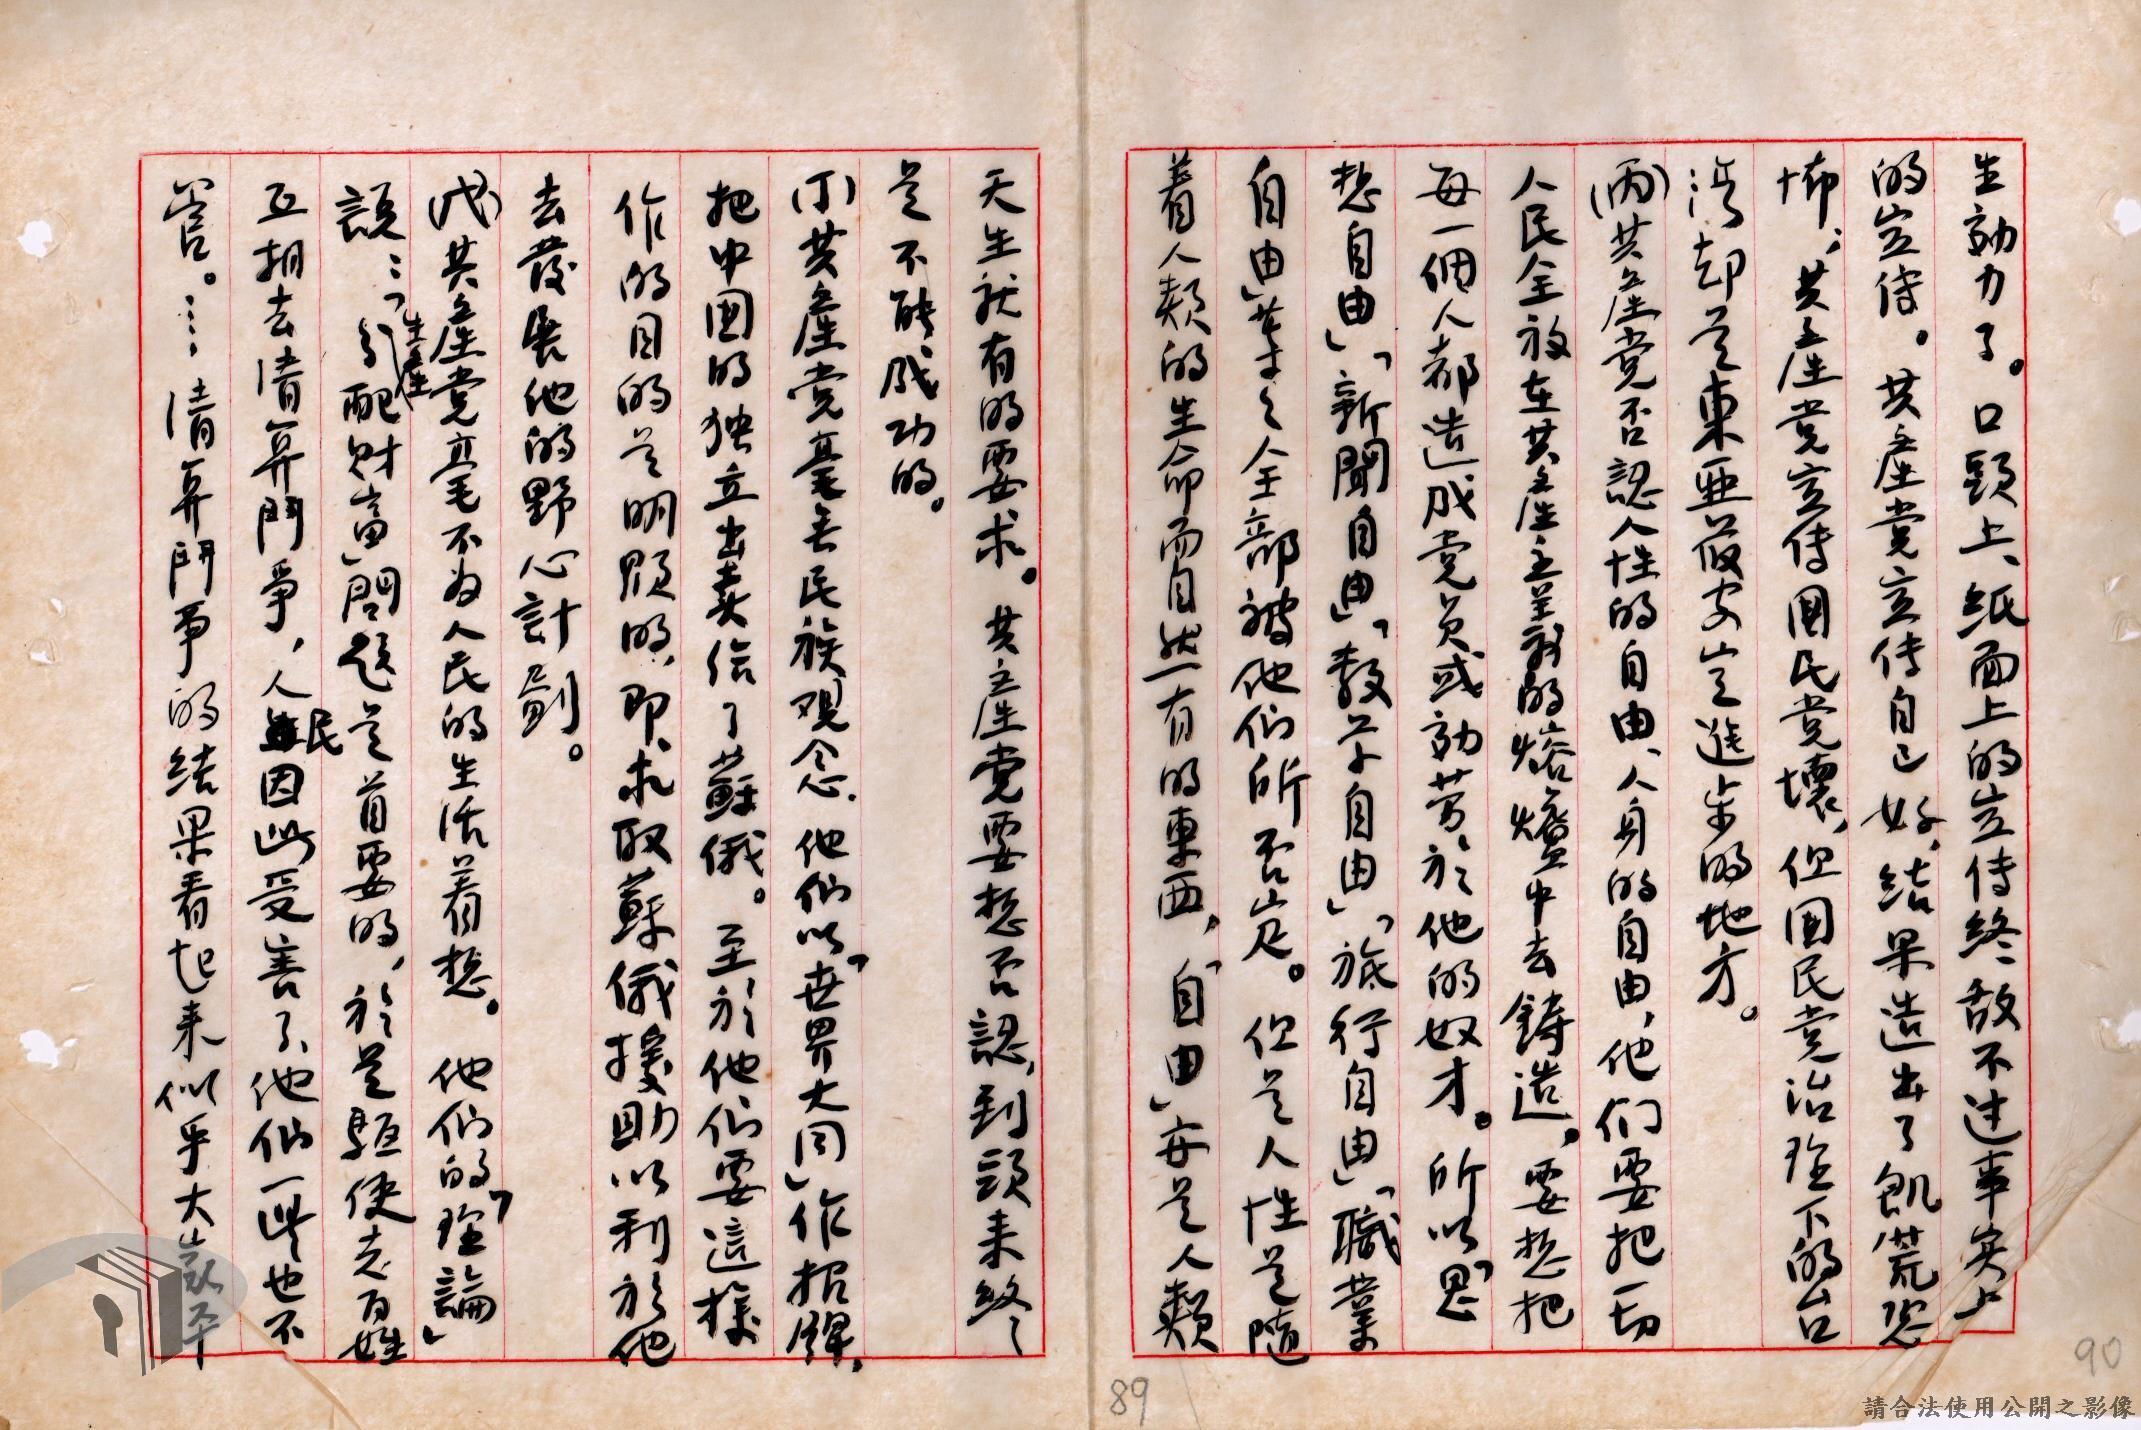 生効力了。口頭上、紙面上的宣傳終敌不过事实上
的宣傳。共產党宣傳自己好,結果造出了飢荒恐
怖,共產党宣傳國民党壞,但國民党治理下的台
湾却是東亜最安定進步的地方。
(丙)共產党否認人性的自由、人身的自由,他们要把一切
人民全放在共產主義的熔爐中去鋳造,要想把
每一個人都造成党员或効劳於他的奴才。所以「思
想自由」「新聞自由」「教学自由」「旅行自由」「職業
自由」等々全部被他们所否定。但是人性是隨
着人類的生命而自然有的東西,「自由」亦是人類
天生就有的要求。共產党要想否認,到頭来終
是不能成功的。
(丁)共產党毫無民族观念。他们以「世界大同」作招牌,
把中國的独立出卖给了蘇俄。至於他们要這樣
作的目的是明顯的,即求取蘇俄援助以利於他
去發展他的野心計劃。
(戊)共產党毫不为人民的生活着想。他们的「理論」
說:「分配生產財富」問題是首要的,於是驅使老百姓
互相去清算鬥爭,人民因此受害了,他们一些也不
管。……清算鬥爭的結果看起来似乎大家平
89
90
請合法使用公開之影像